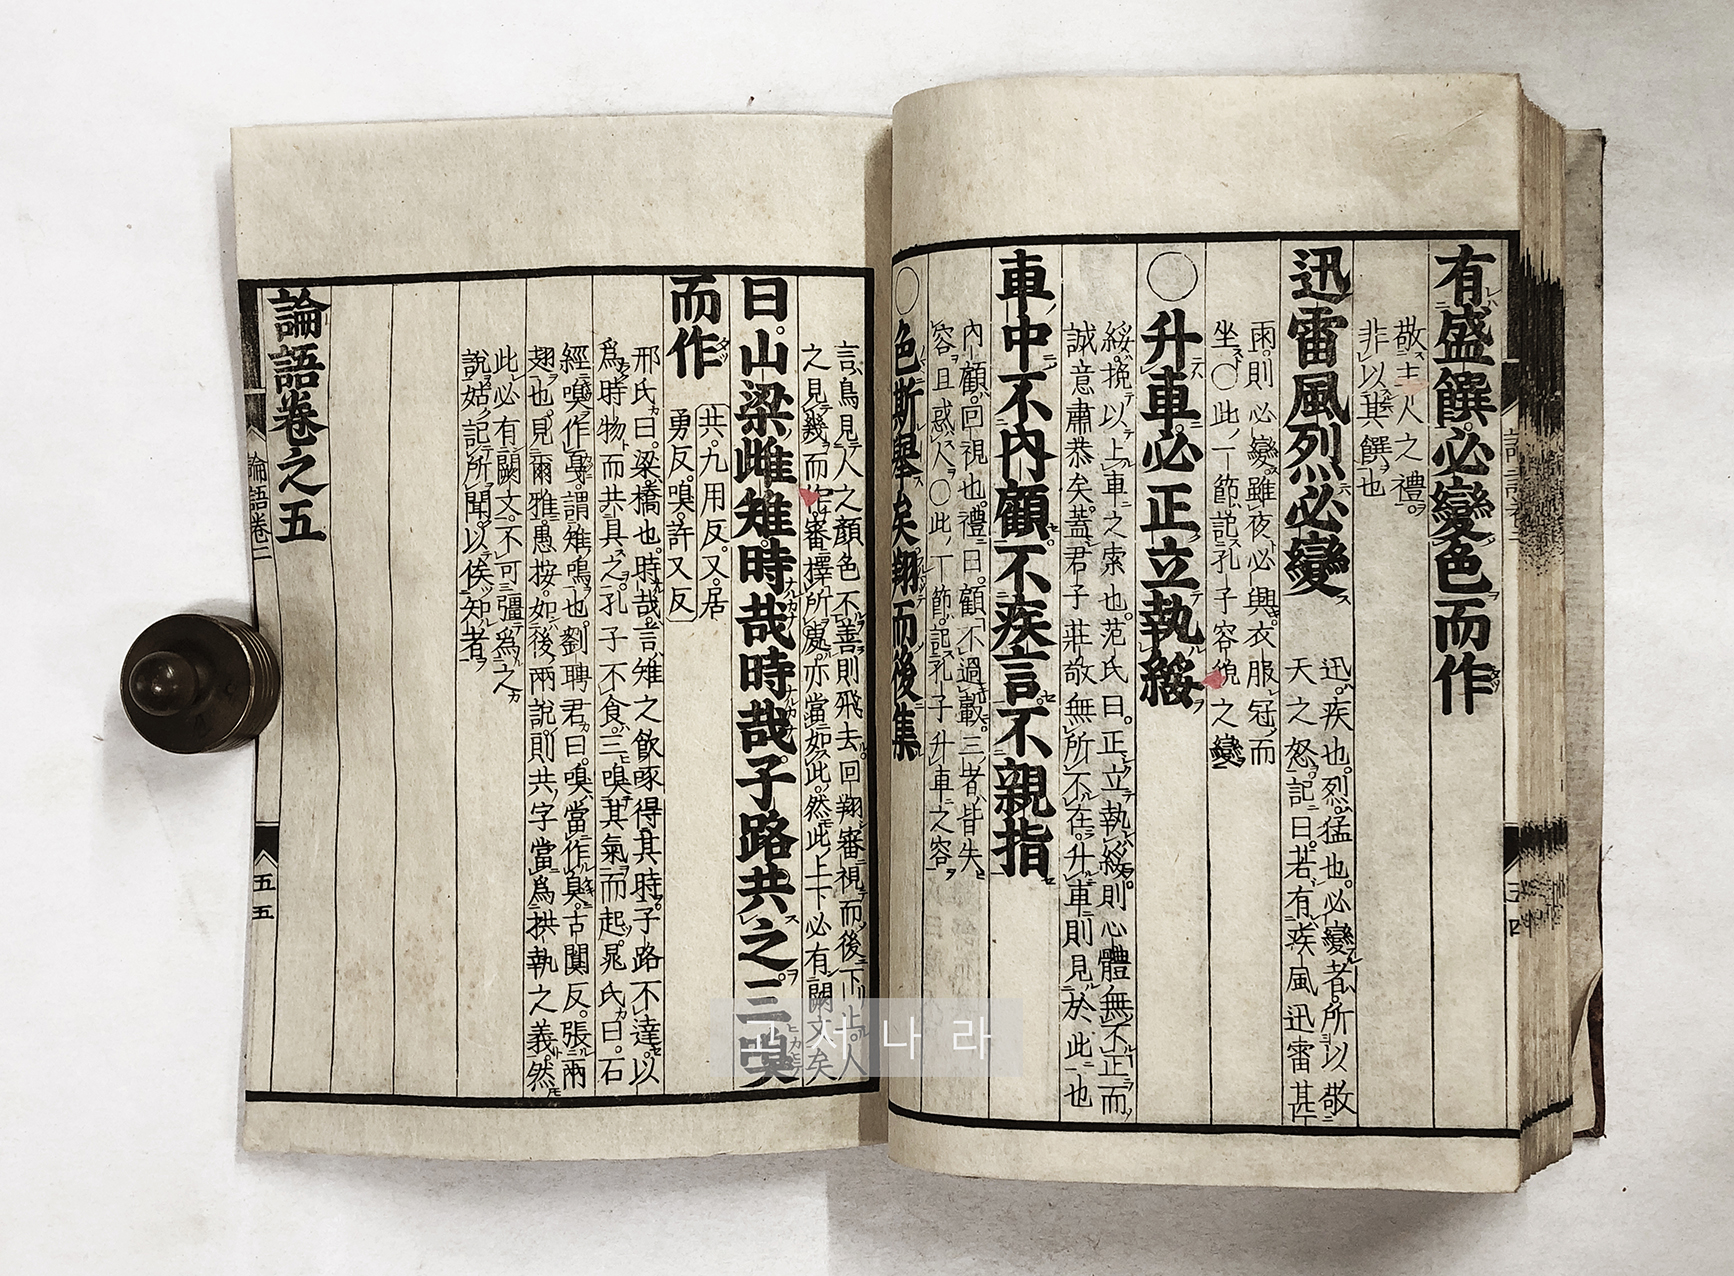 有盛饌必變色而作
敬主人之禮。
非以其饌也
迅雷風烈必變
迅。疾也。烈。猛也。必變者。所以敬
天之怒。記曰。若有疾風迅雷甚
雨。則必變。雖夜必興。衣服冠而
坐○此一節。記孔子容貌之變
○升車。必正立執綏
綏。挽以上車之索也。范氏曰。正立執綏。則心體無不正。而
誠意肅恭矣。蓋君子莊敬無所不在。升車則見於此也
車中不內顧。不疾言。不親指
內顧。回視也。禮曰。顧不過轂。三者。皆失
容。且惑人。○此一節。記孔子升車之容
○色斯舉矣。翔而後集
言鳥見人之顏色不善。則飛去。回翔審視而後下止。人
之見幾而作。審擇所處。亦當如此。然此上下必有闕文矣
曰。山梁雌雉。時哉時哉。子路共之。三嗅
而作
共。九用反。又。居
勇反。嗅。許又反
邢氏曰。梁。橋也。時哉。言雉之飮啄得其時。子路不達。以
爲時物而共具之。孔子不食。三嗅其氣而起。晁氏曰。石
經。嗅作戛。謂雉鳴也。劉聘君曰。嗅。當作狊。古闃反。張兩
翅也。見爾雅。愚按。如後兩說。則共字當爲拱執之義。然
此必有闕文。不可彊爲之
說。姑記所聞。以俟知者。
論語卷之五
論語卷三
五五
고서나라